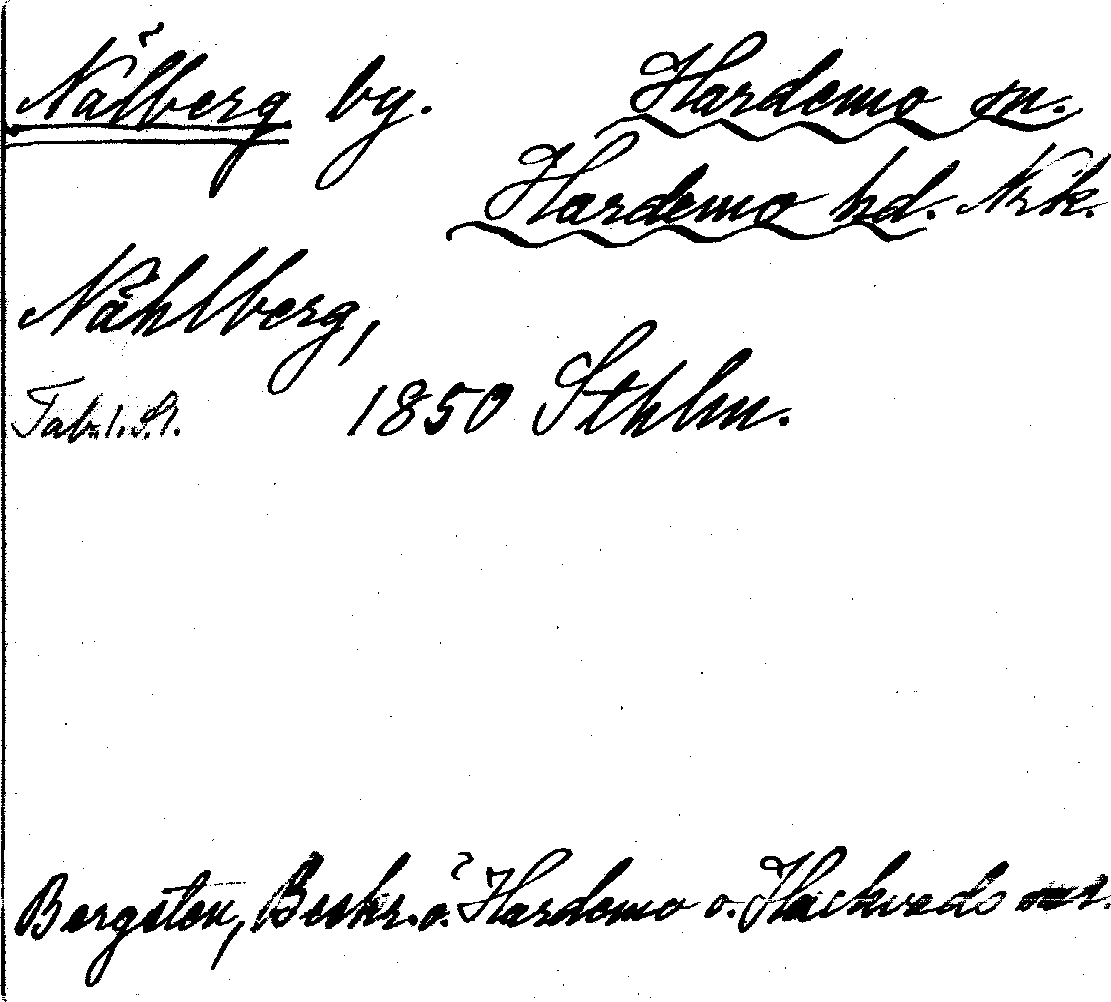 Nålberg by. Hardemo sn.
Hardemo hd. Nrk.
Nåhlberg,
Tab. 1. S. 1. 1850 Sthlm.
Bergsten, Beskr. ö. Hardemo o. Hackvads